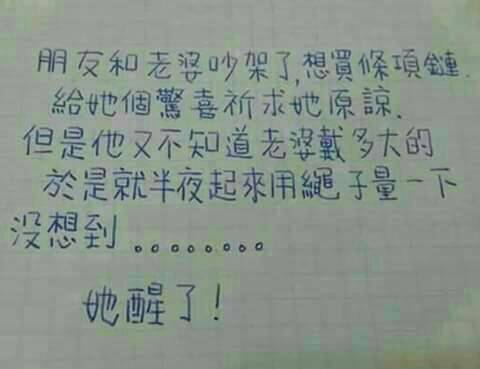 朋友和老婆吵架了,想買條項鏈.
給她個驚喜祈求她原諒.
但是他又不知道老婆戴多大的
於是就半夜起來用繩子量一下
没想到........
她醒了!